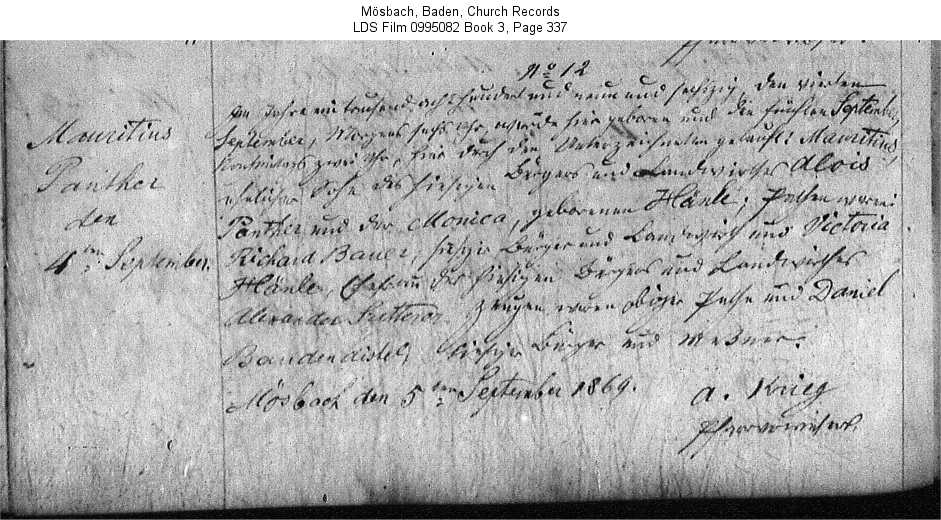 Mösbach, Baden, Church Records
LDS Film 0995082 Book 3, Page 337
No 12
Im Jahre ein tausend acht hundert und neun und sechzig, den vierten
September, Morgens sechs Uhr, wurde hier geboren und den fünften September,
Nachmittags zwei Uhr, hier durch den Unterzeichneten getauft: Mauritius,
ehelicher Sohn des hiesigen Bürgers und Landwirthes Alois
Panther und der Monica, geborenen Hänle; Pathen waren:
Richard Bauer, hiesiger Bürger und Landwirth und Victoria
Hänle, Ehefrau des hiesigen Bürgers und Landwirthes
Alexander Zeugen waren obige Pathe und Daniel
Baudendistel, hiesiger Bürger und Meßner.
Mösbach den 5ten September 1869.
A. Krieg
Pfarrverweser.
Mauritius
Panther
den
4ten September.